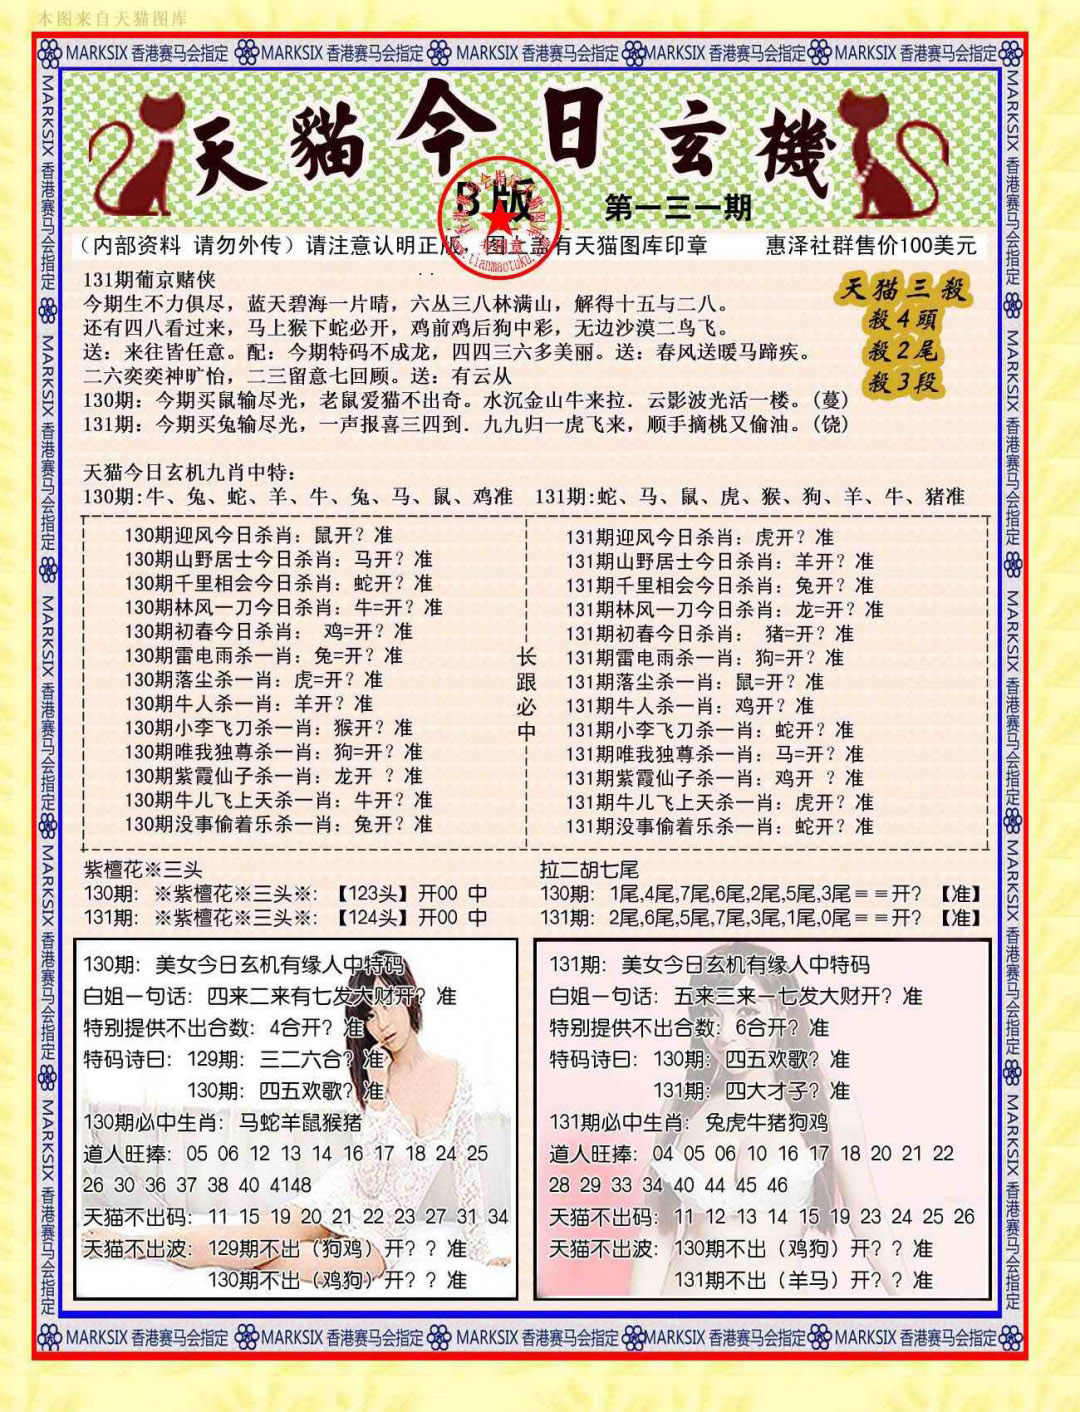 本图来自天猫图库
MARKSIX 香港赛马会指定 MARKSIX 香港赛马会指定 MARKSIX 香港赛马会指定 MARKSIX 香港赛马会指定 MARKSIX 香港赛马会指定
天貓今日玄機
B版
第一三一期
(内部资料 请勿外传)请注意认明正版，图上盖有天猫图库印章 惠泽社群售价100美元
www.tianmaotuku.com
专用章
131期葡京赌侠
今期生不力俱尽，蓝天碧海一片晴，六丛三八林满山，解得十五与二八。
还有四八看过来，马上猴下蛇必开，鸡前鸡后狗中彩，无边沙漠二鸟飞。
送：来往皆任意。配：今期特码不成龙，四四三六多美丽。送：春风送暖马蹄疾。
二六奕奕神旷怡，二三留意七回顾。送：有云从
130期：今期买鼠输尽光，老鼠爱猫不出奇。水沉金山牛来拉．云影波光活一楼。(蔓)
131期：今期买兔输尽光，一声报喜三四到．九九归一虎飞来，顺手摘桃又偷油。(饶)
天猫三殺
殺4頭
殺2尾
殺3段
天猫今日玄机九肖中特：
130期:牛、兔、蛇、羊、牛、兔、马、鼠、鸡准 131期:蛇、马、鼠、虎、猴、狗、羊、牛、猪准
130期迎风今日杀肖：鼠开？准
130期山野居士今日杀肖：马开？准
130期千里相会今日杀肖：蛇开？准
130期林风一刀今日杀肖：牛=开？准
130期初春今日杀肖： 鸡=开？准
130期雷电雨杀一肖：兔=开？准
130期落尘杀一肖：虎=开？准
130期牛人杀一肖：羊开？准
130期小李飞刀杀一肖：猴开？准
130期唯我独尊杀一肖：狗=开？准
130期紫霞仙子杀一肖：龙开 ？准
130期牛儿飞上天杀一肖：牛开？准
130期没事偷着乐杀一肖：兔开？准
长跟必中
131期迎风今日杀肖：虎开？准
131期山野居士今日杀肖：羊开？准
131期千里相会今日杀肖：兔开？准
131期林风一刀今日杀肖：龙=开？准
131期初春今日杀肖： 猪=开？准
131期雷电雨杀一肖：狗=开？准
131期落尘杀一肖：鼠=开？准
131期牛人杀一肖：鸡开？准
131期小李飞刀杀一肖：蛇开？准
131期唯我独尊杀一肖：马=开？准
131期紫霞仙子杀一肖：鸡开 ？准
131期牛儿飞上天杀一肖：虎开？准
131期没事偷着乐杀一肖：蛇开？准
紫檀花※三头
130期：※紫檀花※三头※：【123头】开00 中
131期：※紫檀花※三头※：【124头】开00 中
拉二胡七尾
130期：1尾,4尾,7尾,6尾,2尾,5尾,3尾＝＝开？【准】
131期：2尾,6尾,5尾,7尾,3尾,1尾,0尾＝＝开？【准】
130期：美女今日玄机有缘人中特码
白姐一句话：四来二来有七发大财开？准
特别提供不出合数：4合开？准
特码诗曰：129期：三二六合？准
130期：四五欢歌？准
130期必中生肖：马蛇羊鼠猴猪
道人旺捧：05 06 12 13 14 16 17 18 24 25
26 30 36 37 38 40 4148
天猫不出码：11 15 19 20 21 22 23 27 31 34
天猫不出波：129期不出（狗鸡）开？？准
130期不出（鸡狗）开？？准
131期：美女今日玄机有缘人中特码
白姐一句话：五来三来一七发大财开？准
特别提供不出合数：6合开？准
特码诗曰：130期：四五欢歌？准
131期：四大才子？准
131期必中生肖：兔虎牛猪狗鸡
道人旺捧：04 05 06 10 16 17 18 20 21 22
28 29 33 34 40 44 45 46
天猫不出码：11 12 13 14 15 19 23 24 25 26
天猫不出波：130期不出（鸡狗）开？？准
131期不出（羊马）开？？准
MARKSIX 香港赛马会指定 MARKSIX 香港赛马会指定 MARKSIX 香港赛马会指定 MARKSIX 香港赛马会指定 MARKSIX 香港赛马会指定
MARKSIX 香港赛马会指定 MARKSIX 香港赛马会指定 MARKSIX 香港赛马会指定 MARKSIX 香港赛马会指定 MARKSIX 香港赛马会指定
MARKSIX 香港赛马会指定 MARKSIX 香港赛马会指定 MARKSIX 香港赛马会指定 MARKSIX 香港赛马会指定 MARKSIX 香港赛马会指定